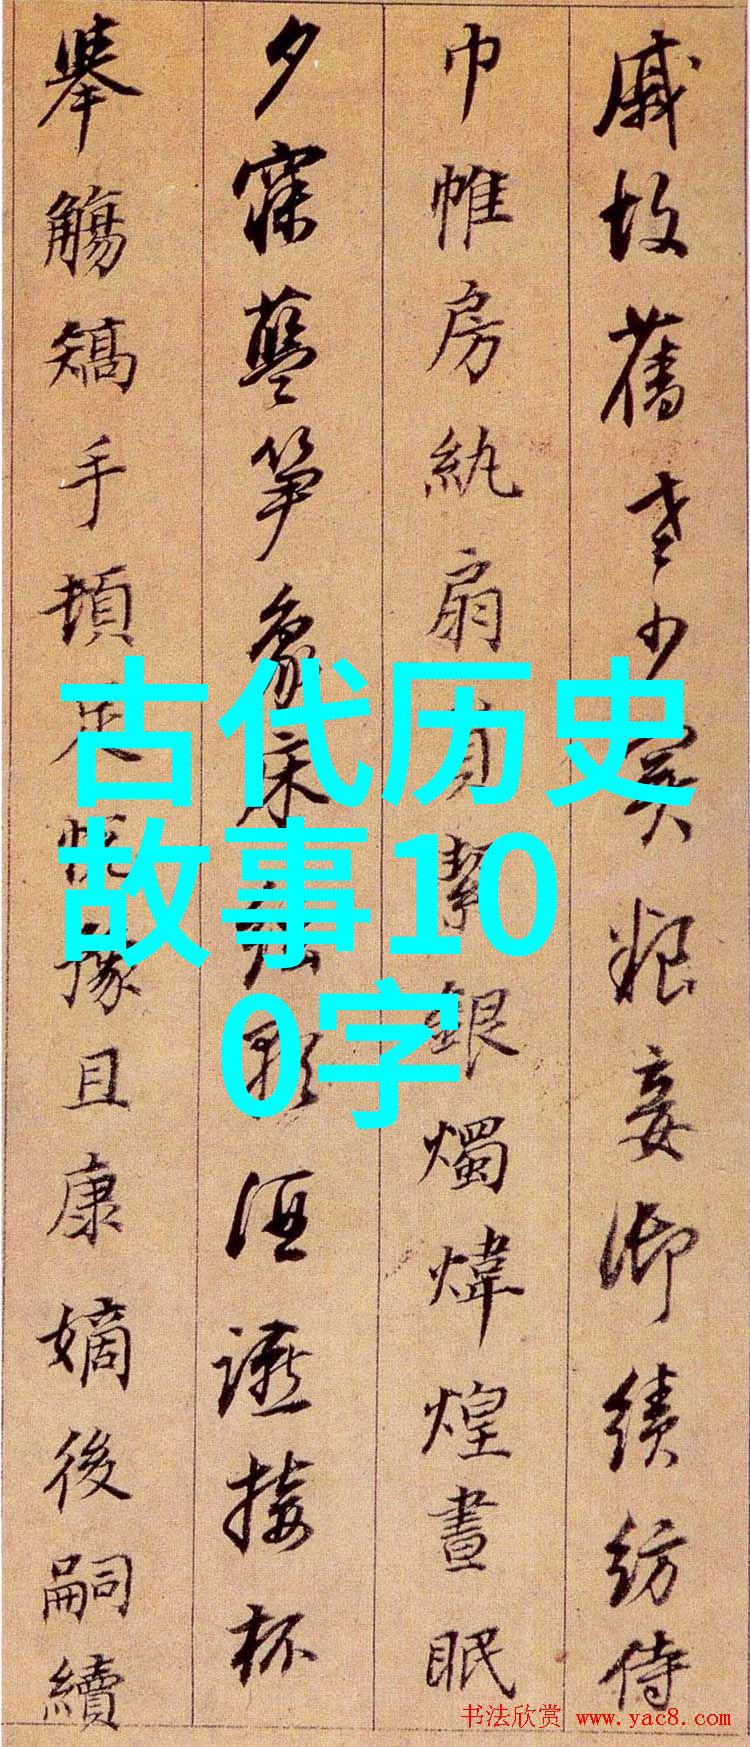 戚故舊老少異粮妾御績紡侍
巾帷房紈扇員潔銀燭煒煌晝眠
夕寐藍笋象床弦歌酒讌接杯
舉觴矯手頓足悅豫且康嫡後嗣續
古代历史
故事10
0字
书法欣赏 www.yac8.com